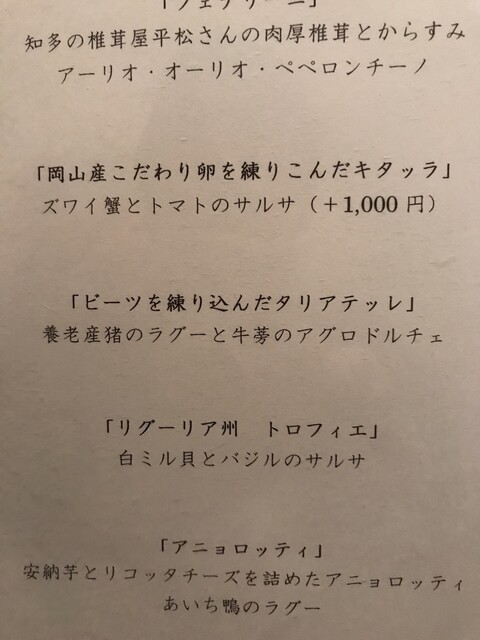 「フェデリーニ」
知多の椎茸屋平松さんの肉厚椎茸とからすみ
アーリオ・オーリオ・ペペロンチーノ
「岡山産こだわり卵を練りこんだキタッラ」
ズワイ蟹とトマトのサルサ（＋1,000 円）
「ビーツを練り込んだタリアテッレ」
養老産猪のラグーと牛蒡のアグロドルチェ
「リグーリア州　トロフィエ」
白ミル貝とバジルのサルサ
「アニョロッティ」
安納芋とリコッタチーズを詰めたアニョロッティ
あいち鴨のラグー